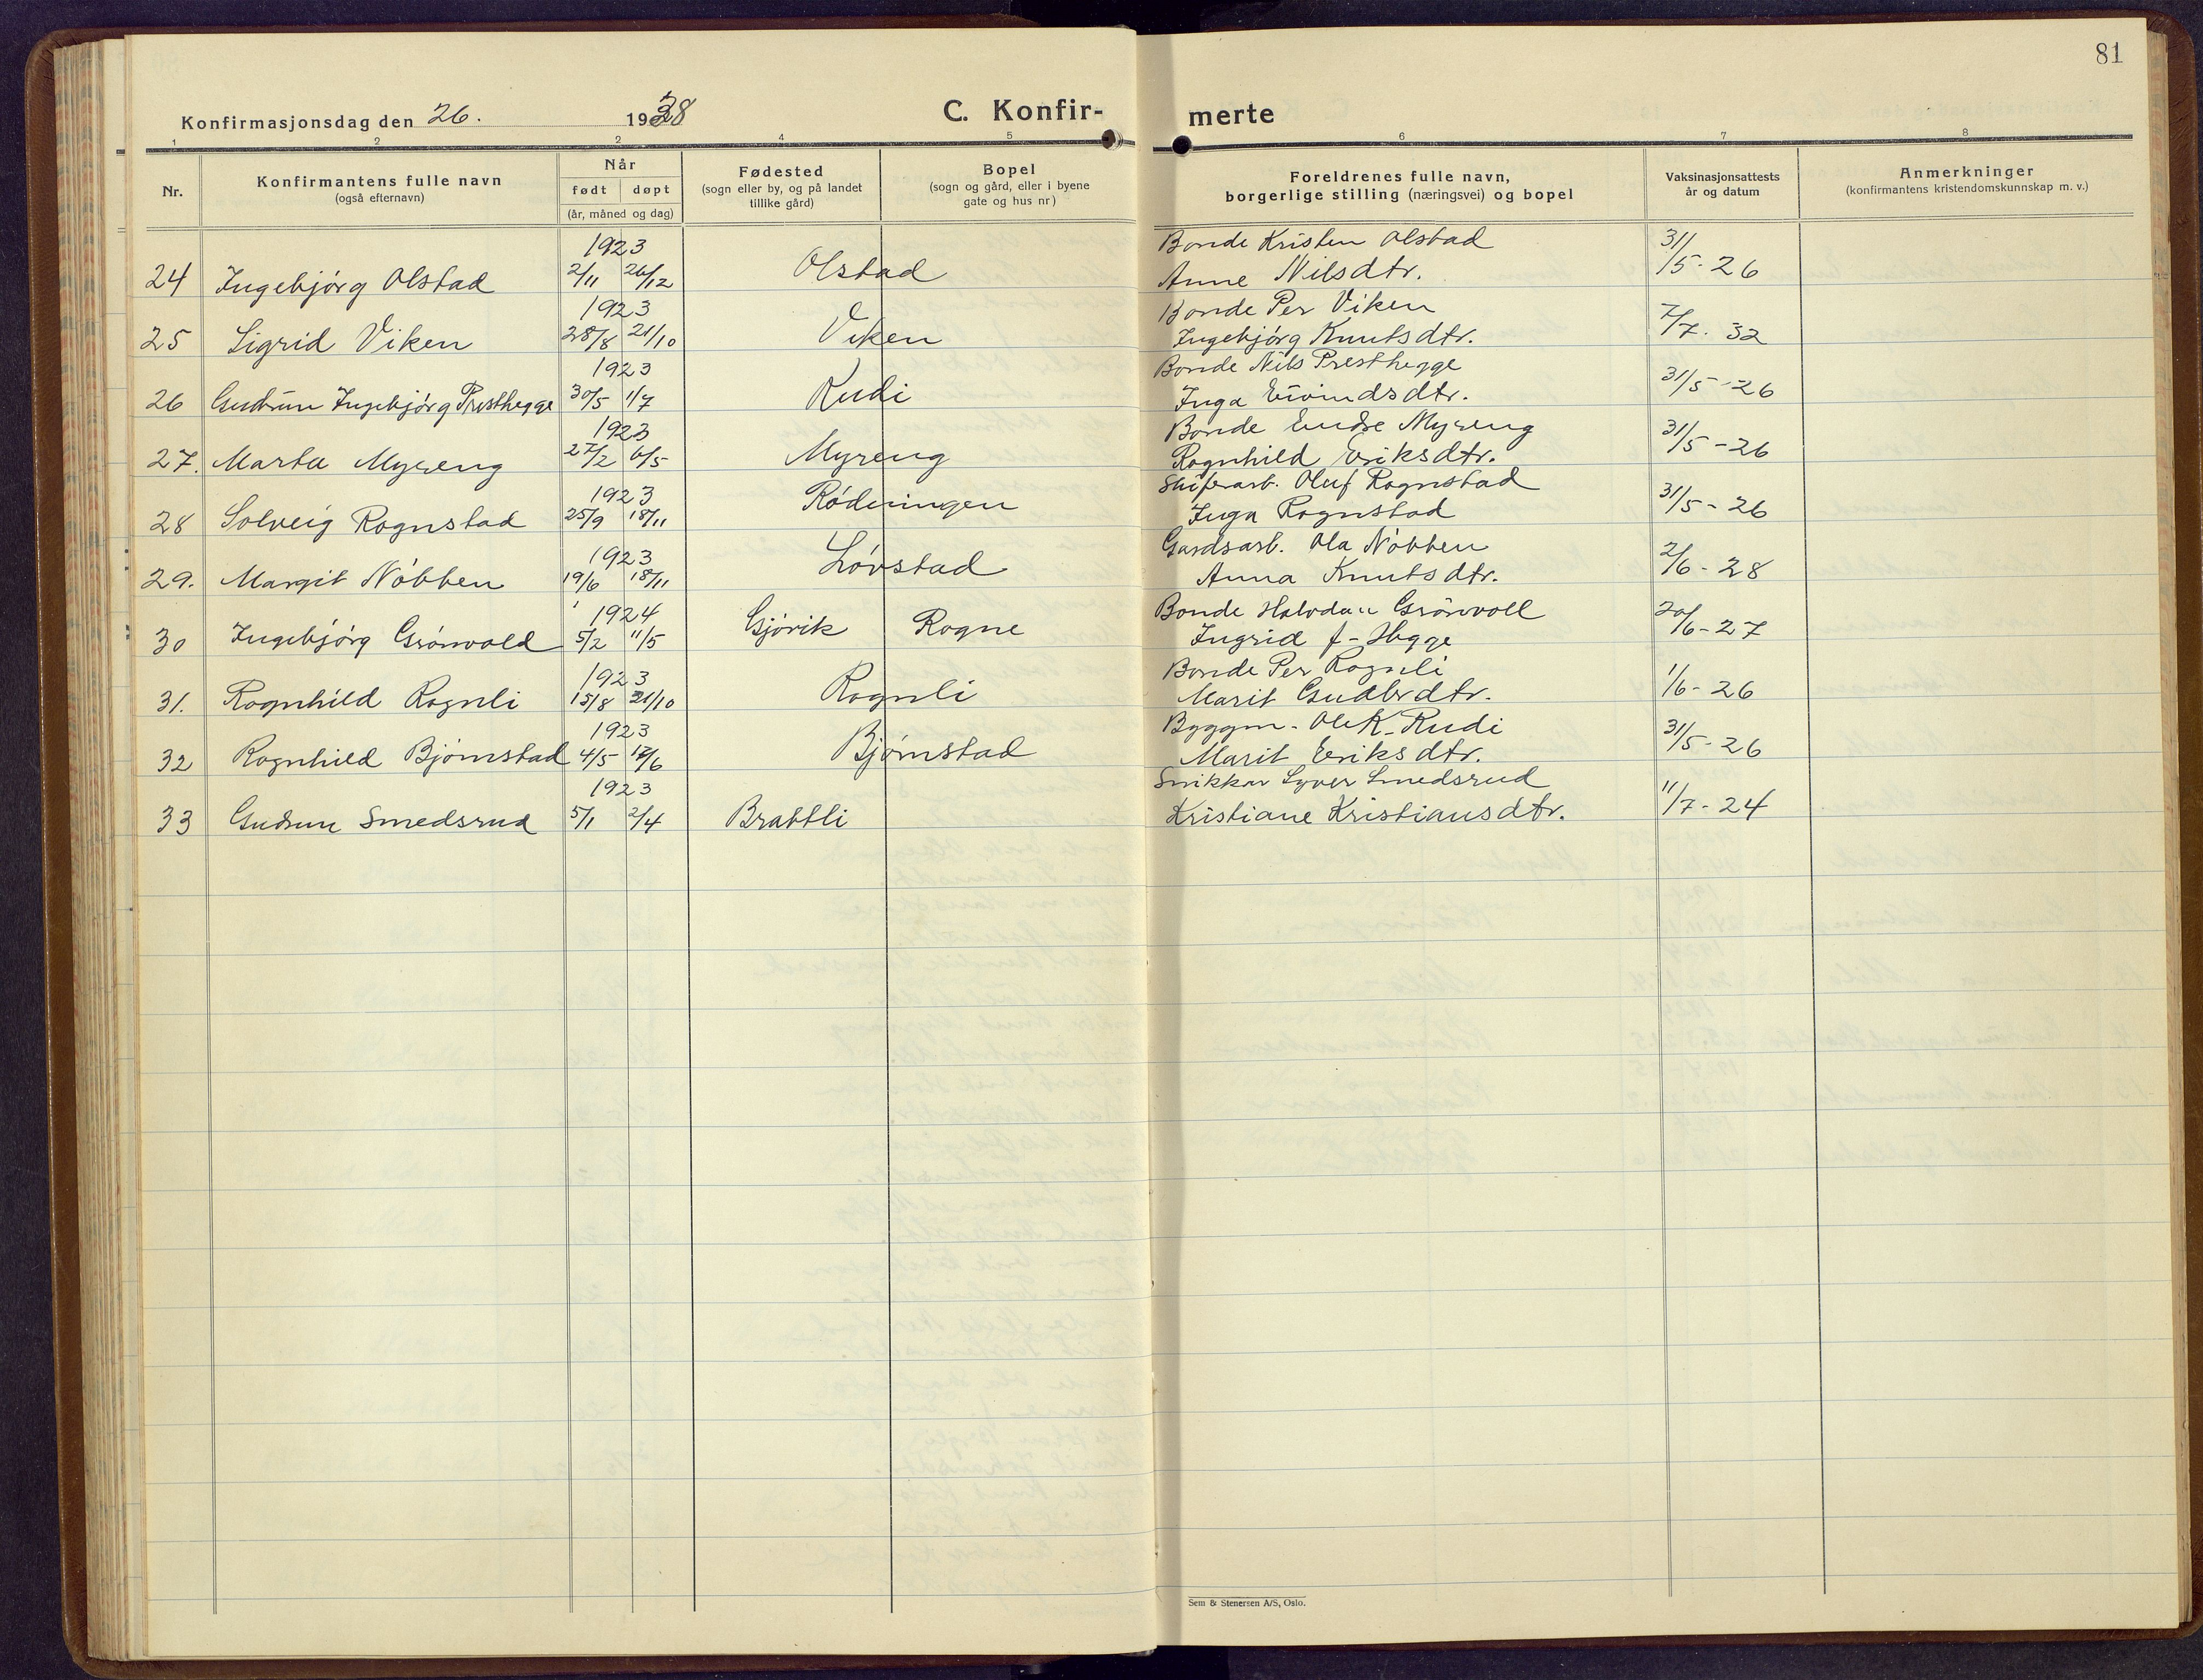 81
Konfirmasjonsdag den 26. 1938
C. Konfir-merte
1 2 2 4 5 6 7 8
Nr.
Konfirmantens fulle navn
(også efternavn)
Når
født døpt
(år, måned og dag)
Fødested
(sogn eller by, og på landet
tillike gård)
Bopel
(sogn og gård, eller i byene
gate og hus nr)
Foreldrenes fulle navn,
borgerlige stilling (næringsvei) og bopel
Vaksinasjonsattests
år og datum
Anmerkninger
(konfirmantens kristendomskunnskap m. v.)
1923 Bonde Kristen Olstad
24 Ingebjörg Olstad 2/11 26/12 Olstad Anne Nilsdtr. 31/5-26
1923 Bonde Per Viken
25 Sigrid Viken 28/8 21/10 Viken Ingebjörg Knutsdtr. 7/7. 32
1923 Bonde Nils Presthegge
26 Gudrun Ingebjörg Presthegge 30/5 1/7 Rudi Inga Eivindsdtr. 31/5-26
1923 Bonde Endre Myreng
27. Marta Myreng 27/2 6/5 Myreng Rognhild Eriksdtr. 31/5-26
1923 Skiferarb. Oluf Rognstad
28 Solveig Rognstad 25/9 18/11 Rödningen Inga Rognstad 31/5-26
1923 Gardsarb. Ola Nöbben
29. Margit Nöbben 19/6 18/11 Lövstad Anna Knutsdtr. 2/6-28
1924 Bonde Halvdan Grönvoll
30 Ingebjörg Grönvold 5/2 11/5 Gjövik Rogne Ingrid f-Hegge 20/6-27
1923 Bonde Per Rognli
31. Rognhild Rognli 15/8 21/10 Rognli Marit Gudbrdtr. 1/6-26
1923 Byggm. Ole K. Rudi
32 Rognhild Björnstad 4/5 17/6 Björnstad Marit Eriksdtr. 31/5-26
1923 Snikkar Syver Smedsrud
33 Gudrun Smedsrud 5/1 2/4 Brattli Kristiane Kristiansdtr. 11/7-24
Sem & Stenersen A/S, Oslo.